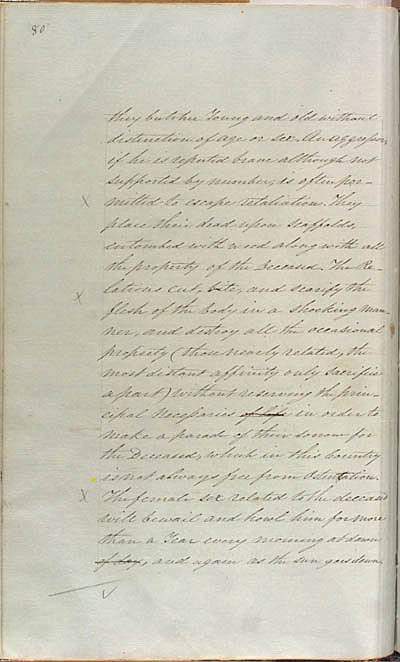 80
they butcher Young and old without
distinction of age or sex. An aggressor,
if he is reputed brave although not
supported by number, is often per-
mitted to escape retaliation. They
place their dead upon scaffolds,
entombed with wood along with all
the property of the Deceased. The Re-
lations cut, bite, and scarify the
flesh of the body in a shocking man-
ner, and destroy all the occasional
property (those nearly related, the
most distant affinity only sacrifice
a part) without reserving the prin-
cipal Necessaries of life in order to
make a parade of their sorrow for
the Deceased, which in this Country
is not always free from Ostentation.
The female sex related to the deceased
will bewail and howl him for more
than a Year every morning at dawn
of day, and again as the sun goes down.